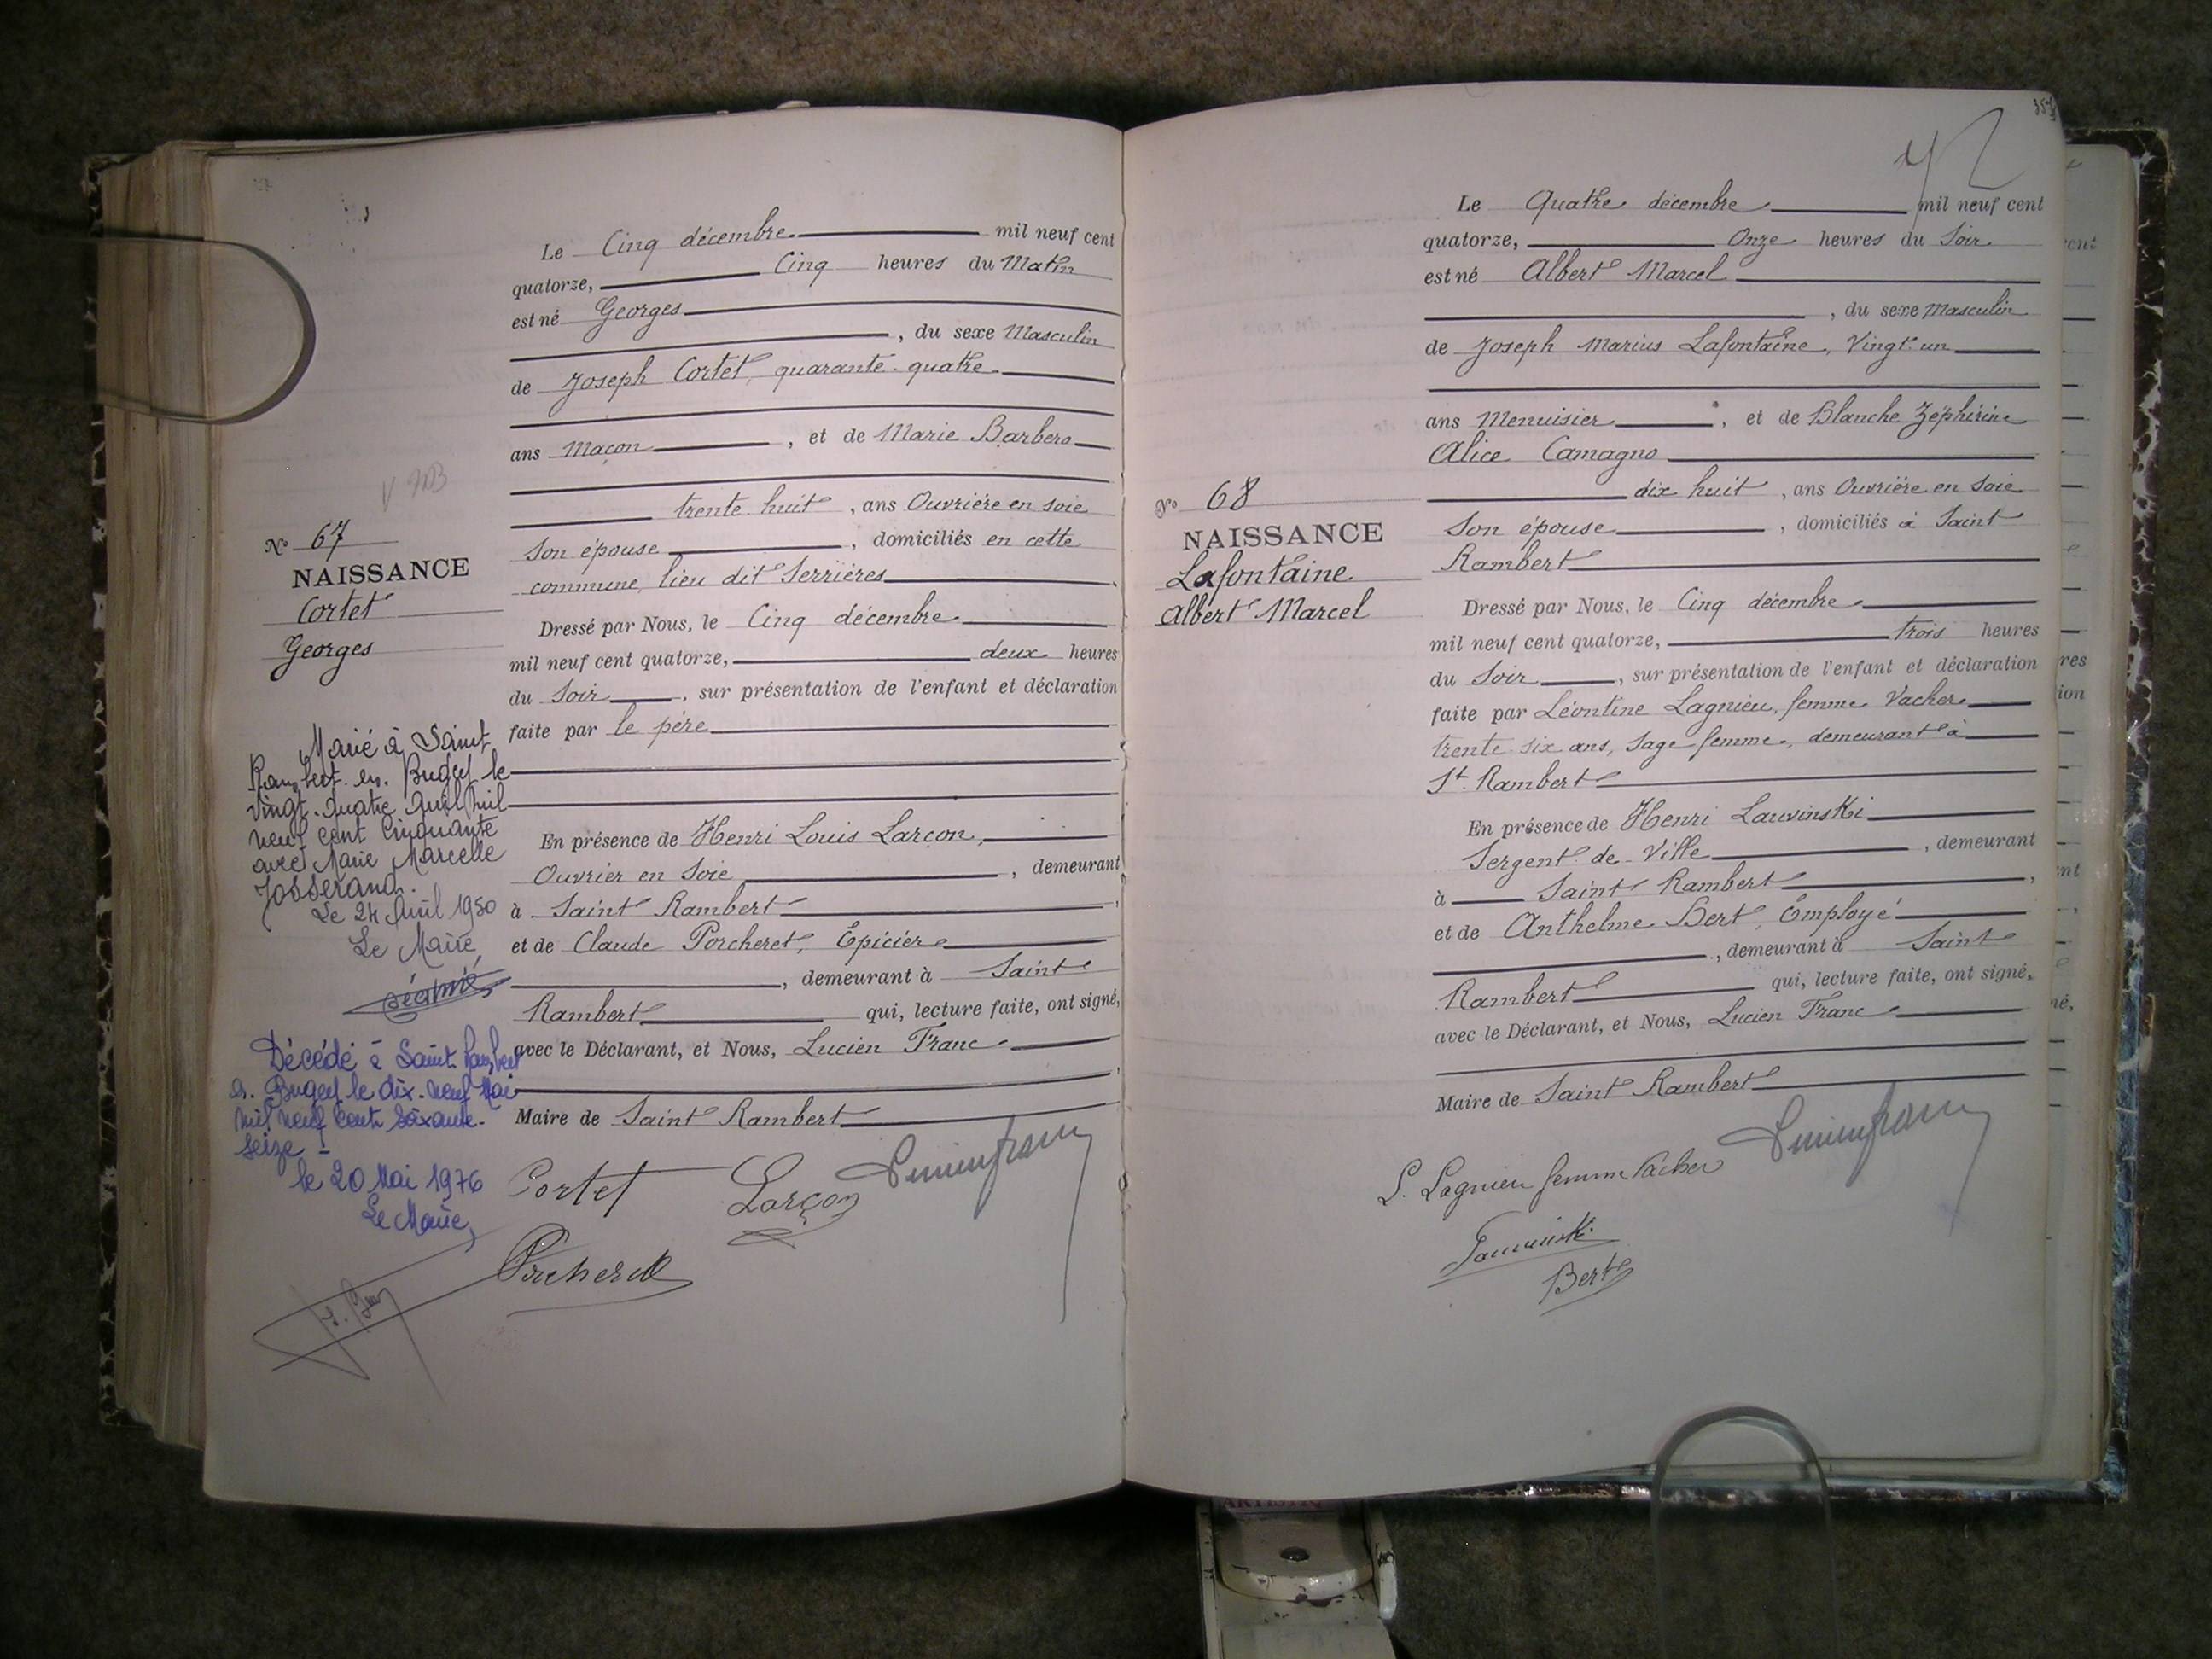 Le Cinq décembre mil neuf cent
quatorze, Cinq heures du Matin
est né Georges
, du sexe Masculin
de Joseph Cortet, quarante-quatre
ans Maçon, et de Marie Barbero
trente huit, ans Ouvrière en soie
Son épouse, domiciliés en cette
commune, lieu dit Serrières
Dressé par Nous, le Cinq décembre
mil neuf cent quatorze, deux heures
du Soir, sur présentation de l'enfant et déclaration
faite par le père
En présence de Henri Louis Larçon,
Ouvrier en Soie, demeurant
à Saint Rambert,
et de Claude Porcheret, Epicier
, demeurant à Saint
Rambert qui, lecture faite, ont signé,
avec le Déclarant, et Nous, Lucien Franc
Maire de Saint Rambert
Cortet Larçon
Porcheret
No 67
NAISSANCE
Cortet
Georges
Marié à Saint
Rambert-en-Bugey le
vingt-quatre Avril mil
neuf cent cinquante
avec Marie Marcelle
Josserand.
Le 24 Avril 1950
Le Maire,
Décédé à Saint-Rambert
en-Bugey le dix-neuf Mai
mil neuf cent soixante-
seize -
le 20 Mai 1976
Le Maire,
Le Quatre décembre mil neuf cent
quatorze, Onze heures du Soir
est né Albert Marcel
, du sexe Masculin
de Joseph Marius Lafontaine, Vingt-un
ans Menuisier, et de Blanche Zéphirine
Alice Camagno
dix huit, ans Ouvrière en Soie
Son épouse, domiciliés à Saint
Rambert
Dressé par Nous, le Cinq décembre
mil neuf cent quatorze, trois heures
du Soir, sur présentation de l'enfant et déclaration
faite par Léontine Lagnieu, femme Vacher
trente six ans, Sage femme, demeurant à
St Rambert
En présence de Henri Lauvinski
Sergent de Ville, demeurant
à Saint Rambert,
et de Anthelme Bert, Employé
, demeurant à Saint
Rambert qui, lecture faite, ont signé,
avec le Déclarant, et Nous, Lucien Franc
Maire de Saint Rambert
L. Lagnieu femme Vacher
Bert
No 68
NAISSANCE
Lafontaine
Albert Marcel